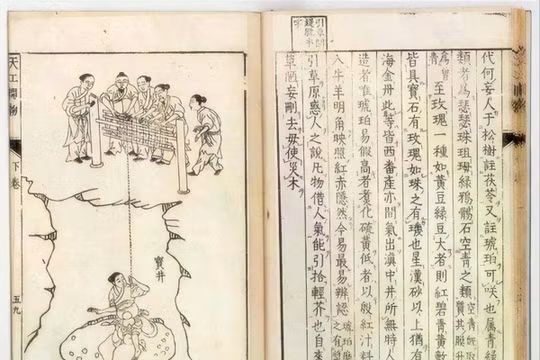 代何妄人于松樹註茯苓又註琥珀可咲也属青綠
類者為瑟瑟珠珇母綠鴉鶻石空青之類空青
質其膜
青至玫瑰一種如黃豆綠豆大者則紅碧青黃數
皆具寶石有玫瑰如珠之有璣也星漢砂以上猶有
海金丹此等皆西番產亦間氣出滇中井所無時人
造者唯琥珀易假高者煮化硫黃低者以殷紅汁料
入牛羊明角映照紅赤隱然今易最易辨認琥珀
之有
引草原惑人之說凡物借人氣能引拾輕芥也自來
草陋妄刪去毋使災木
寶井
天工開物
下卷
五九